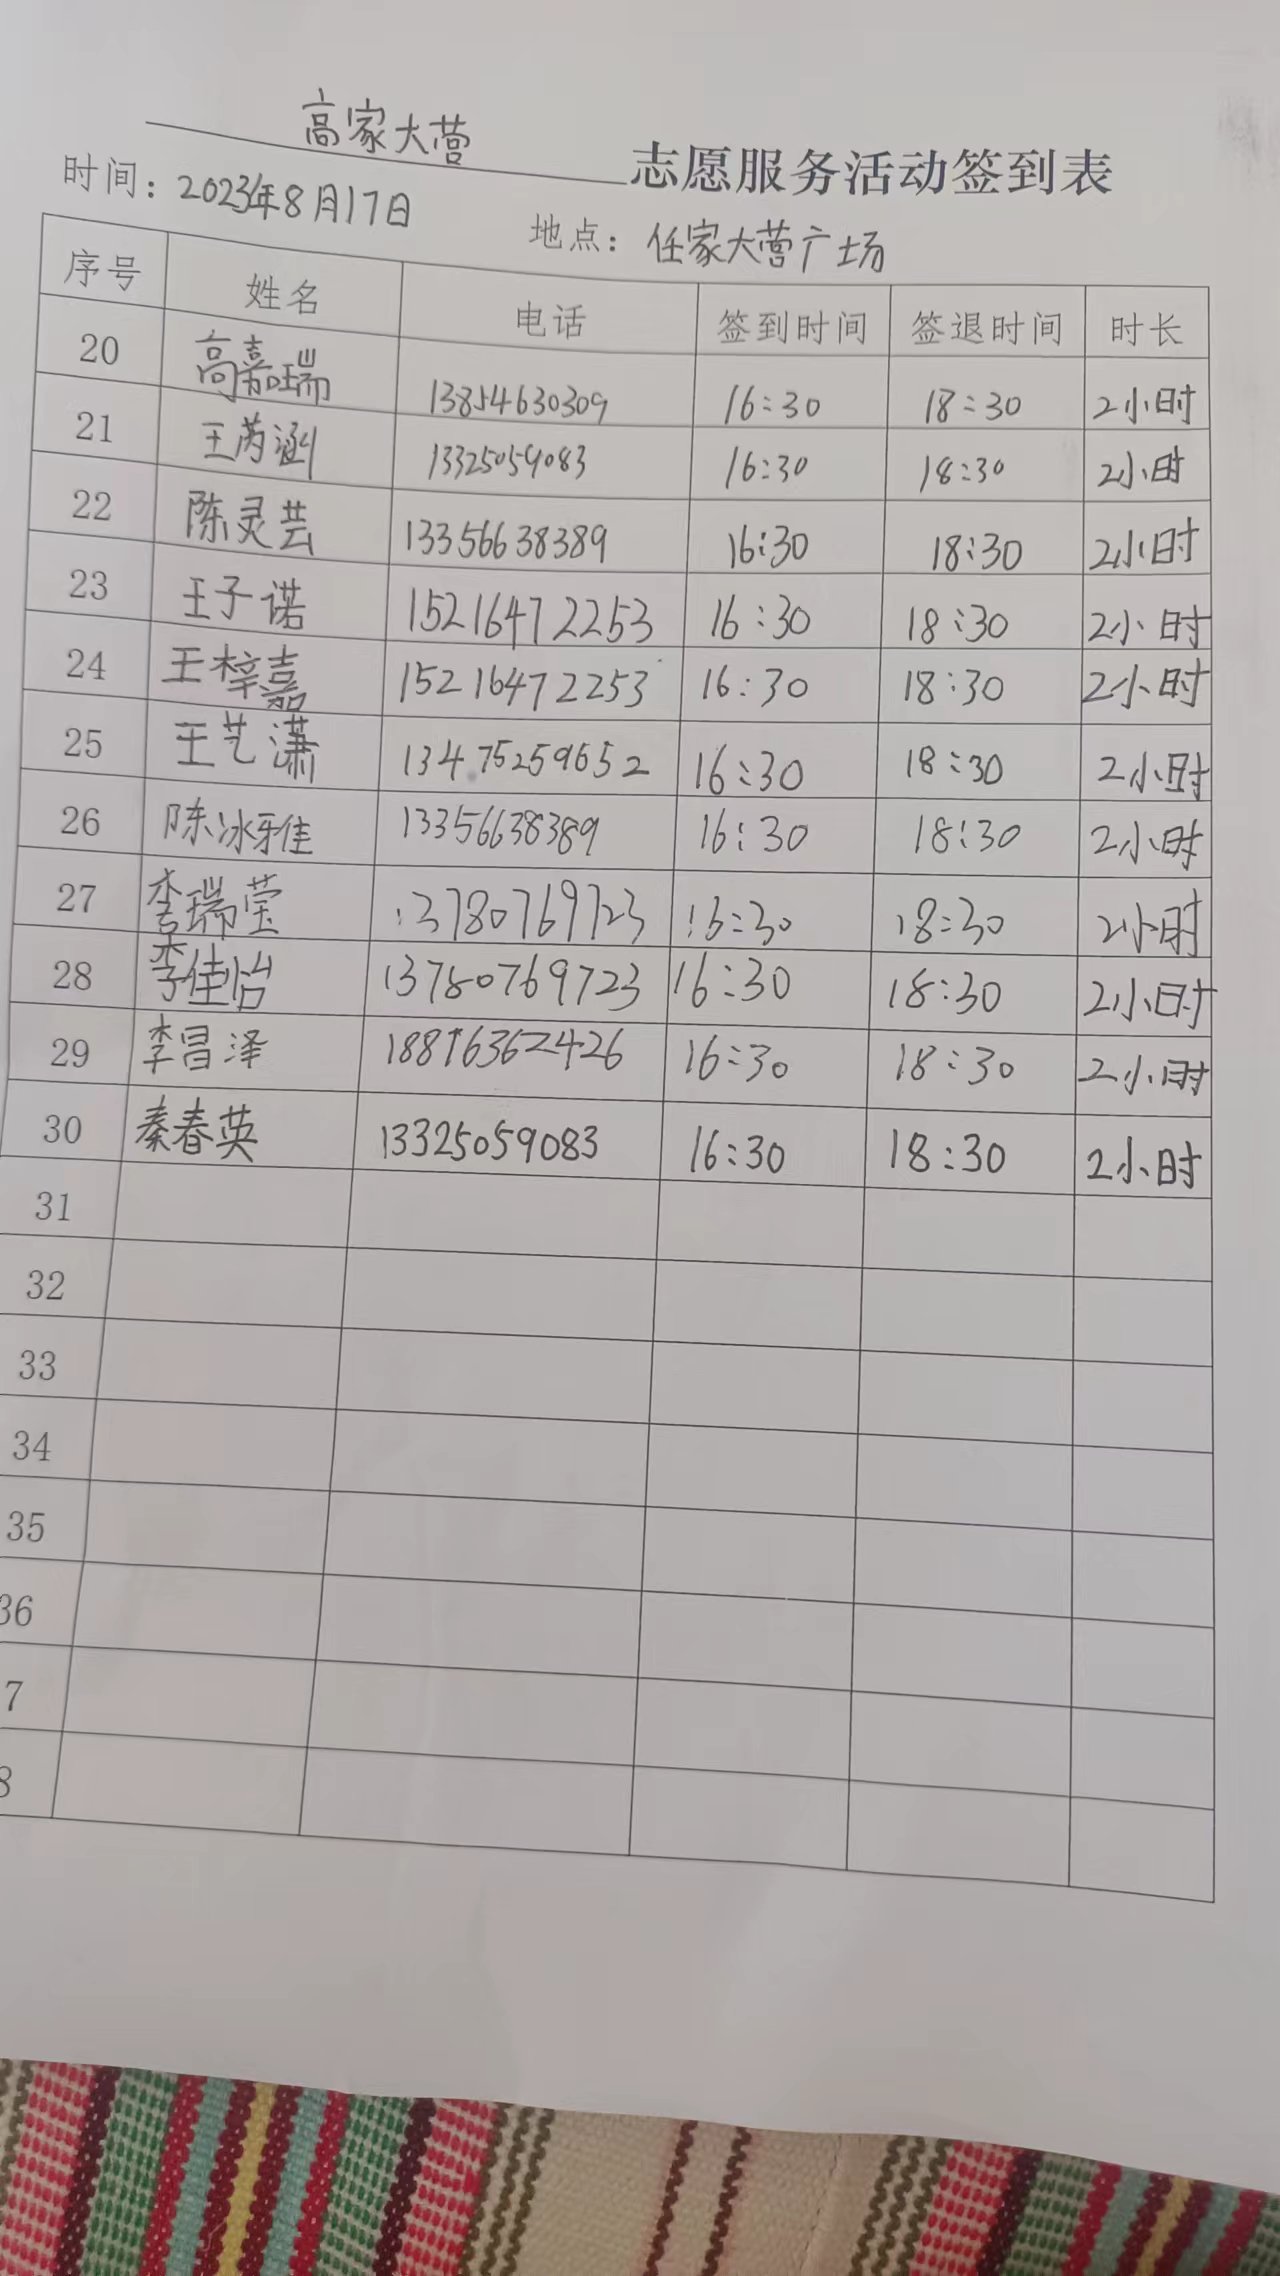 高家大营 志愿服务活动签到表
时间：2023年8月17日 地点：任家大营广场
序号 姓名 电话 签到时间 签退时间 时长
20 高嘉瑞 13854630309 16:30 18:30 2小时
21 王芮涵 13325059083 16:30 18:30 2小时
22 陈灵芸 13356638389 16:30 18:30 2小时
23 王子诺 15216472253 16:30 18:30 2小时
24 王梓嘉 15216472253 16:30 18:30 2小时
25 王艺潇 13475259652 16:30 18:30 2小时
26 陈冰雅佳 13356638389 16:30 18:30 2小时
27 李瑞莹 13780769723 16:30 18:30 2小时
28 李佳怡 13780769723 16:30 18:30 2小时
29 李昌泽 16:30 18:30 2小时
30 秦春英 13325059083 16:30 18:30 2小时
31
32
33
34
35
36
7
8